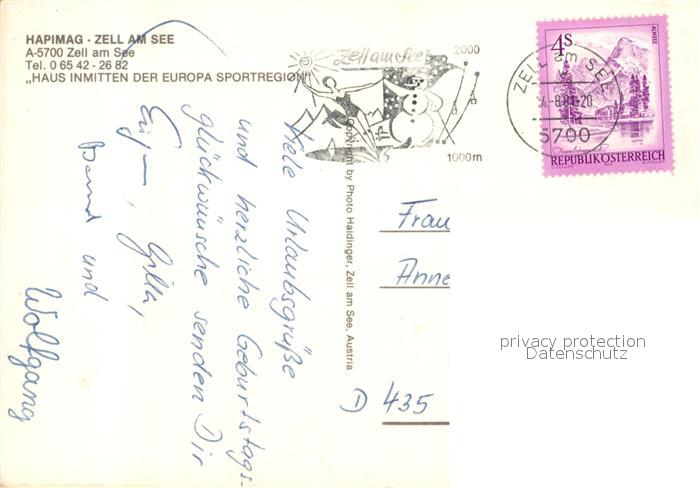 HAPIMAG - ZELL AM SEE
A-5700 Zell am See
Tel. 0 65 42 - 26 82
„HAUS INMITTEN DER EUROPA SPORTREGION"
Zell am See
2000
1000m
ZELL AM SEE
5700
4S
ALMSEE
REPUBLIK ÖSTERREICH
Viele Urlaubsgrüße
und herzliche Geburtstags-
glückwünsche senden Dir
Gilla,
Bernd und
Wolfgang
Copyright by Photo Haidinger, Zell am See, Austria
Frau
Anne
D 435
privacy protection
Datenschutz